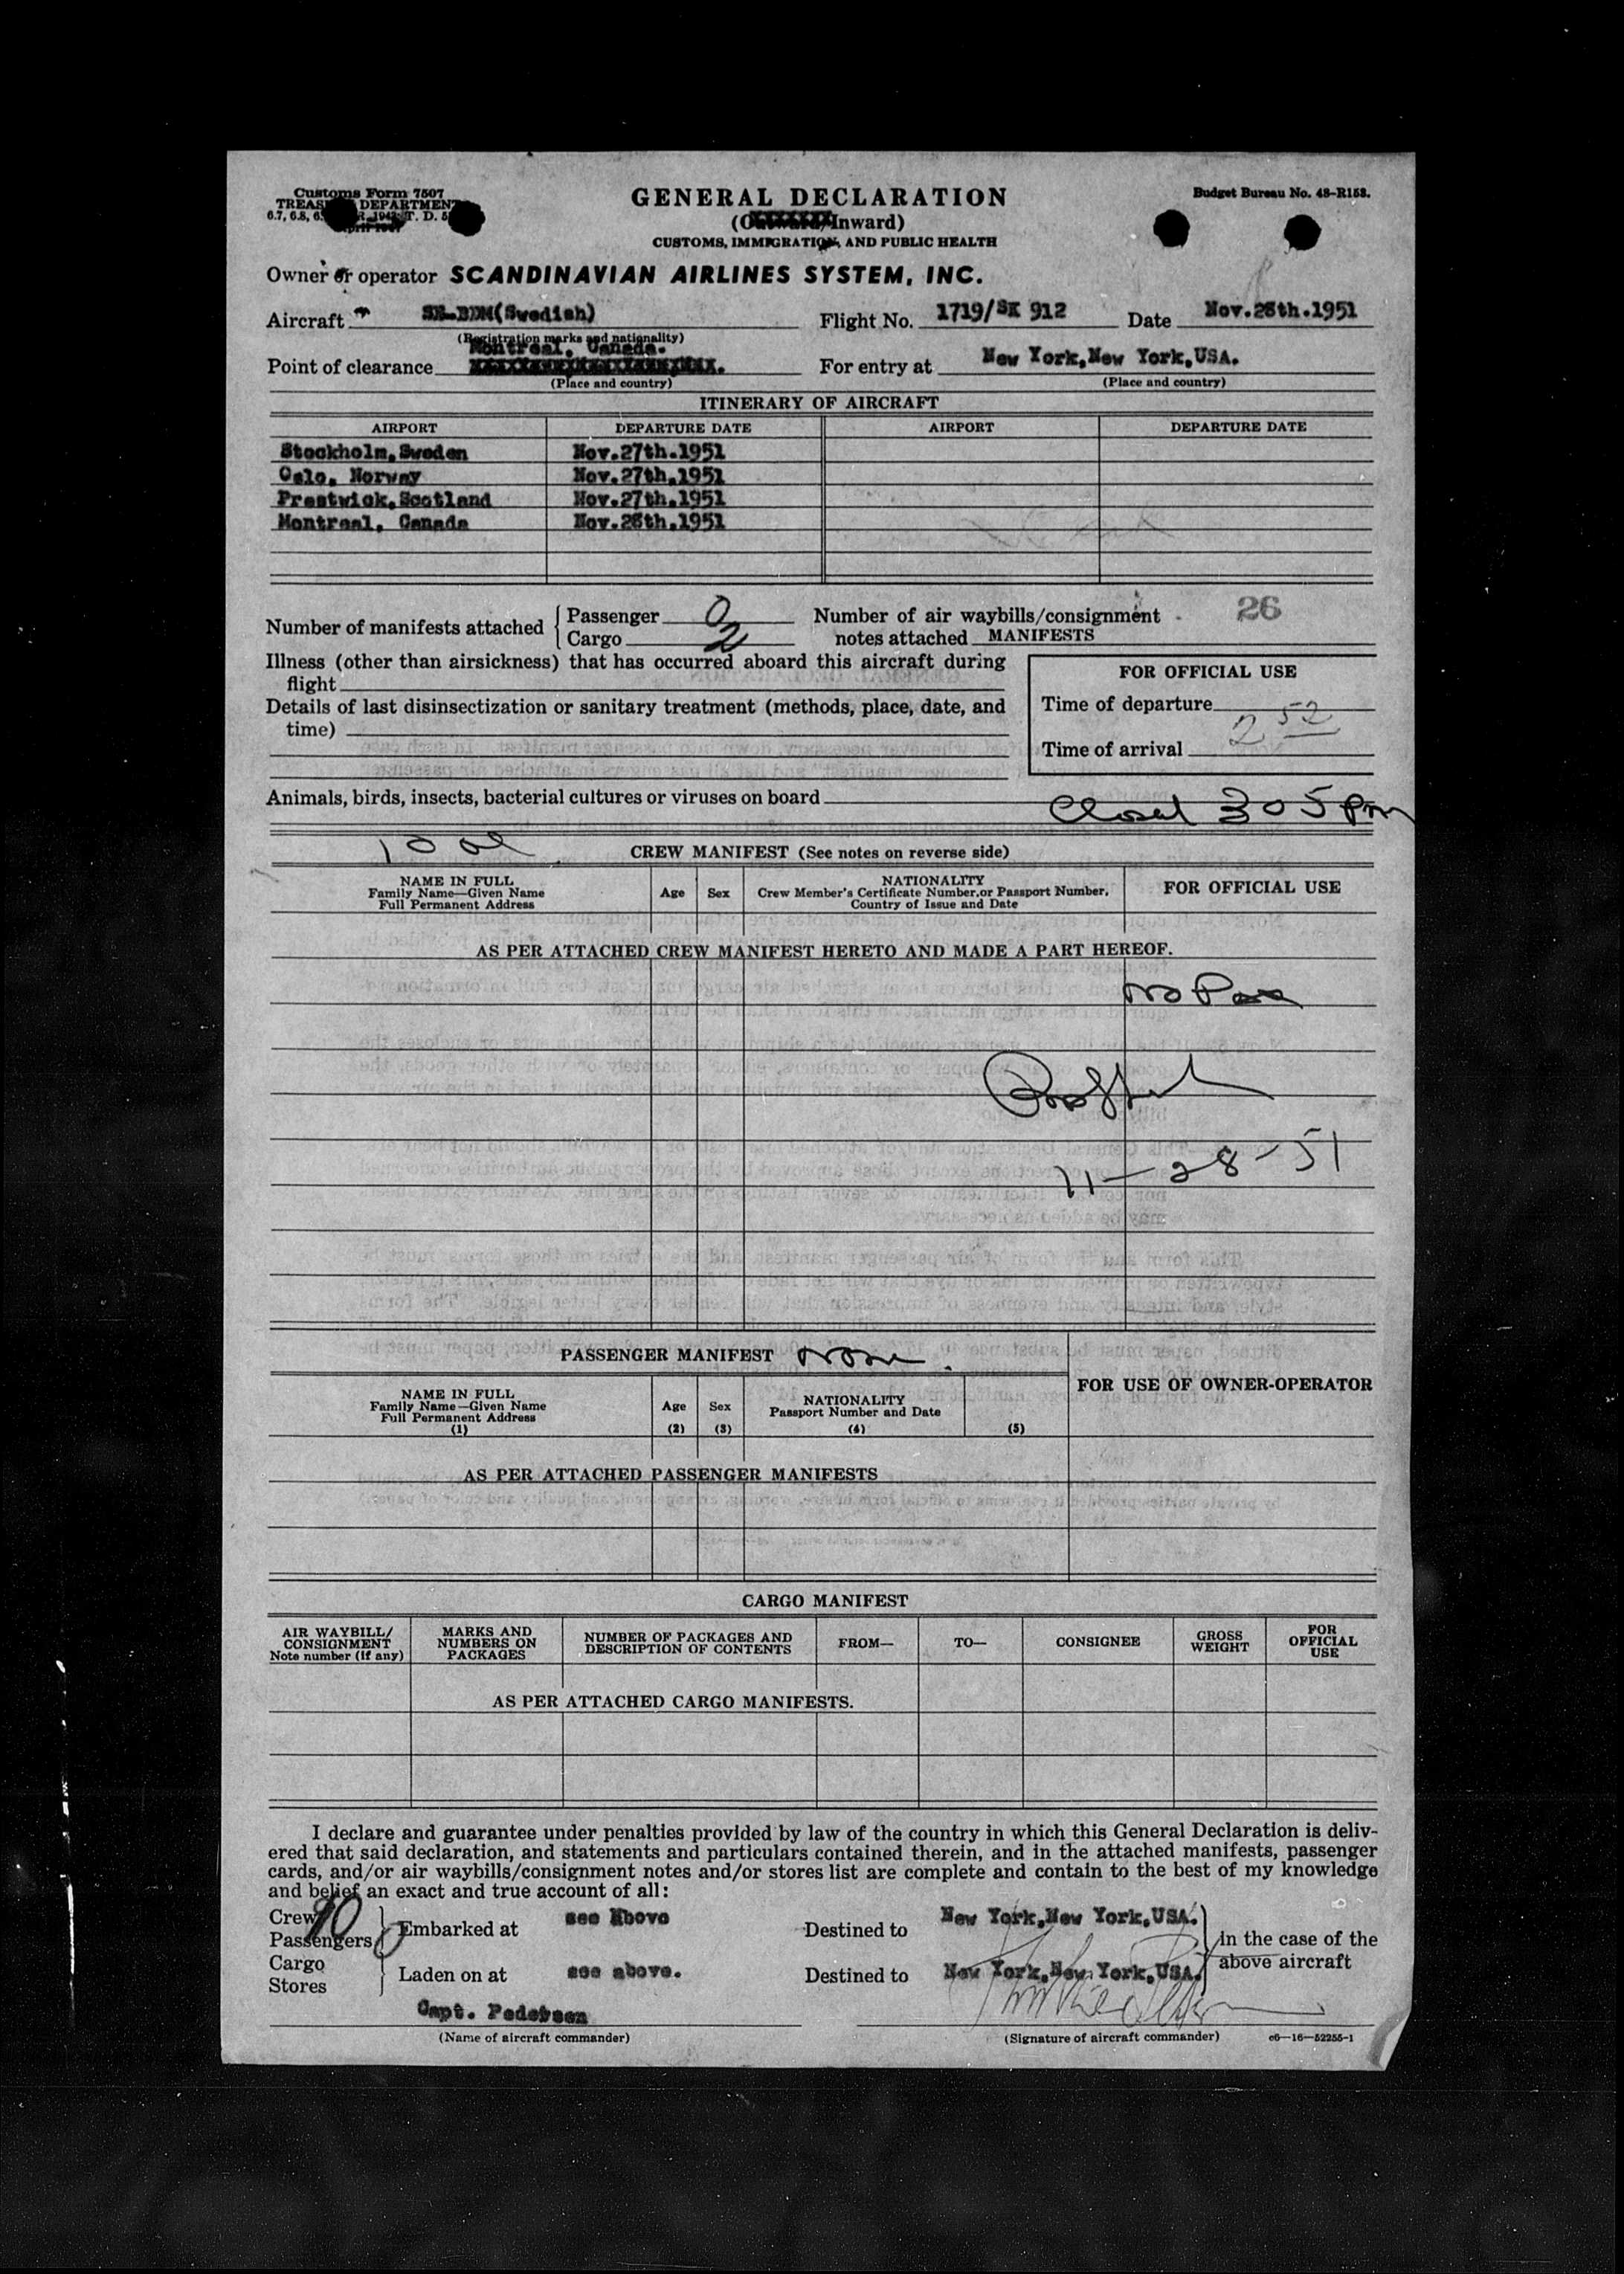 Customs Form 7507
TREAS DEPARTMENT
6.7, 6.8, 1942, T. D. 5
April 1947
GENERAL DECLARATION
Inward)
CUSTOMS, IMMIGRATION, AND PUBLIC HEALTH
Budget Bureau No. 48-R153.
Owner or operator SCANDINAVIAN AIRLINES SYSTEM, INC.
Aircraft SE-BDM(Swedish) Flight No. 1719/SK 912 Date Nov.28th.1951
(Registration marks and nationality)
Montreal, Canada.
Point of clearance For entry at New York,New York,USA.
(Place and country) (Place and country)
ITINERARY OF AIRCRAFT
AIRPORT DEPARTURE DATE AIRPORT DEPARTURE DATE
Stockholm,Sweden Nov.27th.1951
Oslo, Norway Nov.27th.1951
Prestwick,Scotland Nov.27th.1951
Montreal, Canada Nov.28th.1951
Number of manifests attached { Passenger 0 Number of air waybills/consignment 26
Cargo 2 notes attached MANIFESTS
Illness (other than airsickness) that has occurred aboard this aircraft during
flight
Details of last disinsectization or sanitary treatment (methods, place, date, and
time)
FOR OFFICIAL USE
Time of departure
Time of arrival 2 52
Animals, birds, insects, bacterial cultures or viruses on board
Closed 305 pm
10
CREW MANIFEST (See notes on reverse side)
NAME IN FULL
Family Name—Given Name
Full Permanent Address
Age Sex
NATIONALITY
Crew Member's Certificate Number,or Passport Number,
Country of Issue and Date
FOR OFFICIAL USE
AS PER ATTACHED CREW MANIFEST HERETO AND MADE A PART HEREOF.
No Pax
11-28-51
PASSENGER MANIFEST None
FOR USE OF OWNER-OPERATOR
NAME IN FULL
Family Name—Given Name
Full Permanent Address
(1)
Age
(2)
Sex
(3)
NATIONALITY
Passport Number and Date
(4)
(5)
AS PER ATTACHED PASSENGER MANIFESTS
CARGO MANIFEST
AIR WAYBILL/
CONSIGNMENT
Note number (if any)
MARKS AND
NUMBERS ON
PACKAGES
NUMBER OF PACKAGES AND
DESCRIPTION OF CONTENTS
FROM— TO— CONSIGNEE
GROSS
WEIGHT
FOR
OFFICIAL
USE
AS PER ATTACHED CARGO MANIFESTS.
I declare and guarantee under penalties provided by law of the country in which this General Declaration is deliv-
ered that said declaration, and statements and particulars contained therein, and in the attached manifests, passenger
cards, and/or air waybills/consignment notes and/or stores list are complete and contain to the best of my knowledge
and belief an exact and true account of all:
Crew 10
Passengers 0 } Embarked at see Above Destined to New York,New York,USA. } in the case of the
Cargo
Stores } Laden on at see above. Destined to New York,New York,USA. above aircraft
Capt. Pedersen
(Name of aircraft commander) (Signature of aircraft commander) c6—16—52255-1